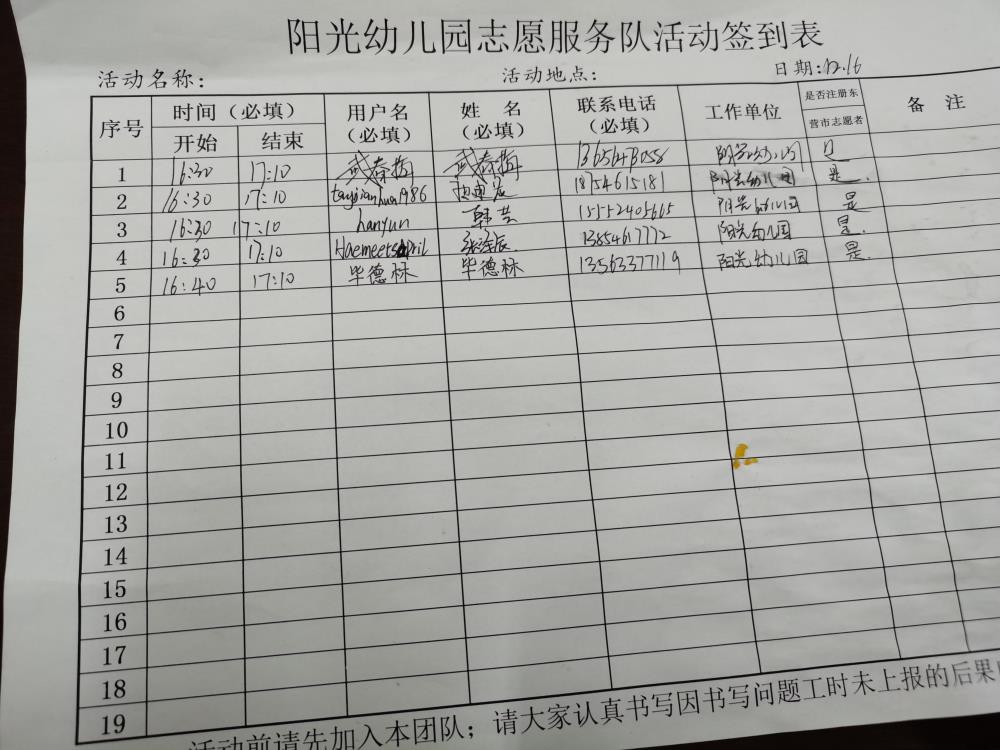 阳光幼儿园志愿服务队活动签到表
活动名称： 活动地点： 日期：12.16
序号 时间（必填） 开始 结束 用户名（必填） 姓名（必填） 联系电话（必填） 工作单位 是否注册东营市志愿者 备注
1 16:30 17:10 武春梅 武春梅 阳光幼儿园 是
2 16:30 17:10 18754615181 阳光幼儿园 是.
3 16:30 17:10 hanyun 韩芸 15552405665 阳光幼儿园 是
4 16:30 17:10 13854617772 阳光幼儿园 是.
5 16:40 17:10 毕德林 毕德林 13563377119 阳光幼儿园 是.
6
7
8
9
10
11
12
13
14
15
16
17
18
19
活动前请先加入本团队；请大家认真书写因书写问题工时未上报的后果